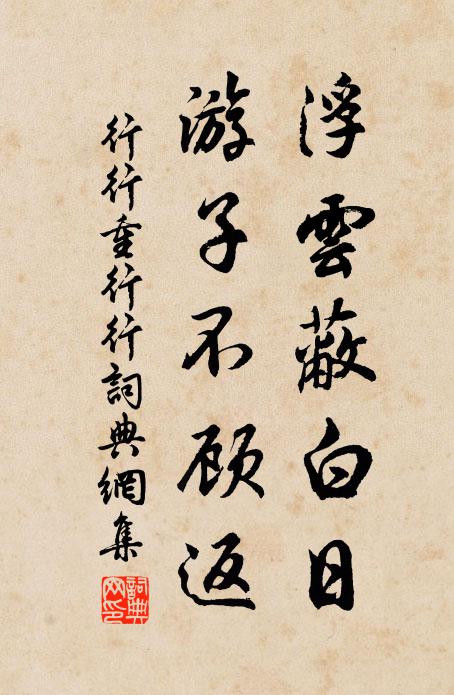 浮雲蔽白日
游子不顾返
行行重行行詞典網集
詞典
网印